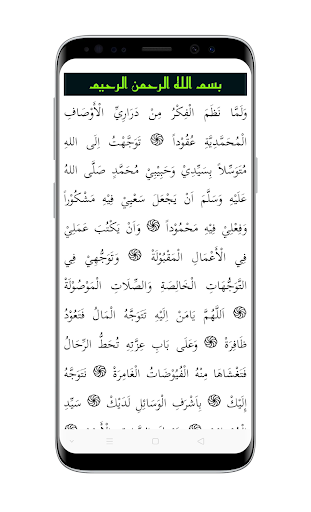 بسم الله الرحمن الرحيم
وَلَمَّا نَظَمَ الْفِكْرُ مِنْ دَرَارِيِّ الْأَوْصَافِ
الْمُحَمَّدِيَّةِ عُقُوْداً ۞ تَوَجَّهْتُ إِلَى اللهِ
مُتَوَسِّلاً بِسَيِّدِيْ وَحَبِيْبِيْ مُحَمَّدٍ صَلَّى اللهُ
عَلَيْهِ وَسَلَّمَ اَنْ يَجْعَلَ سَعْيِيْ فِيْهِ مَشْكُوْراً
وَفِعْلِيْ فِيْهِ مَحْمُوْداً ۞ وَاَنْ يَكْتُبَ عَمَلِيْ
فِي الْأَعْمَالِ الْمَقْبُوْلَةْ ۞ وَتَوَجُّهِيْ فِي
التَّوَجُّهَاتِ الْخَالِصَةِ وَالصِّلَاتِ الْمَوْصُوْلَةْ
۞ اَللَّهُمَّ يَامَنْ اِلَيْهِ تَتَوَجَّهُ الْآمَالُ فَتَعُوْدُ
ظَافِرَةْ ۞ وَعَلَى بَابِ عِزَّتِهِ تُحَطُّ الرِّحَالُ
فَتَغْشَاهَا مِنْهُ الْفُيُوْضَاتُ الْغَامِرَةْ ۞ نَتَوَجَّهُ
إِلَيْكَ ۞ بِاَشْرَفِ الْوَسَائِلِ لَدَيْكَ ۞ سَيِّدِ